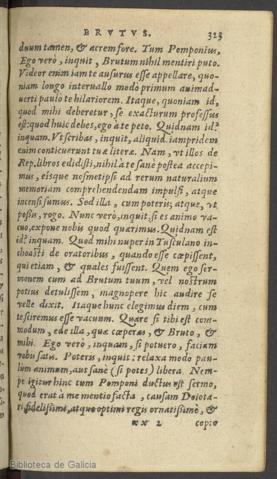 BRVTVS. 323
duum tamen, & acrem fore. Tum Pomponius,
Ego verò, inquit, Brutum nihil mentiri puto.
Videor enim iam te ausurus esse appellare, quo-
niam longo interuallo modò primum animad-
uerti paulo te hilariorem. Itaque, quoniam id,
quod mihi deberetur, se exacturum professus
est: quod huic debes, ego à te peto. Quidnam id?
inquam. Vt scribas, inquit, aliquid. iampridem
enim conticuerunt tuæ literæ. Nam, vt illos de
Rep. libros edidisti, nihil à te sanè postea accepi-
mus, eisque nosmetipsi ad rerum naturalium
memoriam comprehendendam impulsi, atque
incensi sumus. Sed illa, cum poteris; atque, vt
possis, rogo. Nunc verò, inquit, si es animo va-
cuo, expone nobis quod quærimus. Quidnam est
id? inquam. Quod mihi nuper in Tusculano in-
choasti de oratoribus, quando esse cœpissent,
qui etiam, & quales fuissent. Quem ego ser-
monem cum ad Brutum tuum, vel nostrum
potius detulissem, magnopere hic audire se
velle dixit. Itaque hunc elegimus diem, cum
te sciremus esse vacuum. Quare si tibi est com-
modum, ede illa, quæ cœperas, & Bruto, &
mihi. Ego verò, inquam, si potuero, faciam
vobis satis. Poteris, inquit: relaxa modò pau-
lum animum, aut sanè (si potes) libera. Nem-
pe igitur hinc tum Pomponi ductus est sermo,
quod erat à me mentio facta, causam Deiota-
ri fidelissimi, atque optimi regis ornatissimè, &
xx 2 copio
Biblioteca de Galicia